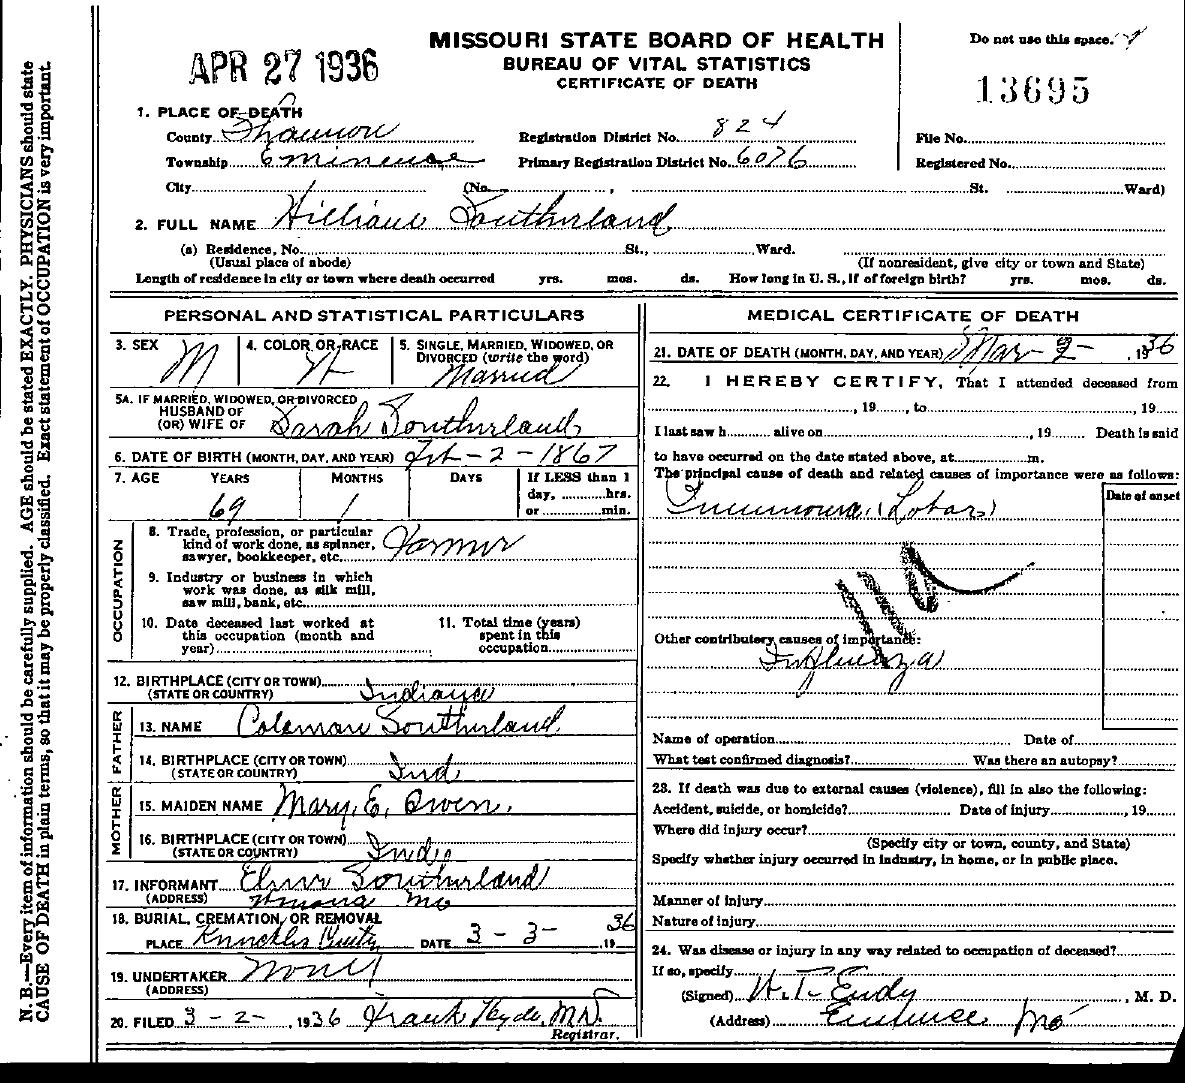 N. B.—Every item of information should be carefully supplied. AGE should be stated EXACTLY. PHYSICIANS should state
CAUSE OF DEATH in plain terms, so that it may be properly classified. Exact statement of OCCUPATION is very important.
APR 27 1936
MISSOURI STATE BOARD OF HEALTH
BUREAU OF VITAL STATISTICS
CERTIFICATE OF DEATH
Do not use this space.
13695
1. PLACE OF DEATH
County Shannon Registration District No. 824 File No.
Township Eminence Primary Registration District No. 6076 Registered No.
City (No. , St. Ward)
2. FULL NAME William Southerland
(a) Residence, No. St., Ward.
(Usual place of abode) (If nonresident, give city or town and State)
Length of residence in city or town where death occurred yrs. mos. ds. How long in U. S., if of foreign birth? yrs. mos. ds.
PERSONAL AND STATISTICAL PARTICULARS
3. SEX M
4. COLOR OR RACE W
5. SINGLE, MARRIED, WIDOWED, OR
DIVORCED (write the word)
Married
5A. IF MARRIED, WIDOWED, OR DIVORCED
HUSBAND OF
(OR) WIFE OF Sarah Southerland
6. DATE OF BIRTH (MONTH, DAY, AND YEAR) Feb - 2 - 1867
7. AGE YEARS MONTHS DAYS If LESS than 1
day, hrs.
or min.
69 1
OCCUPATION
8. Trade, profession, or particular
kind of work done, as spinner,
sawyer, bookkeeper, etc. Farmer
9. Industry or business in which
work was done, as silk mill,
saw mill, bank, etc.
10. Date deceased last worked at
this occupation (month and
year)
11. Total time (years)
spent in this
occupation
12. BIRTHPLACE (CITY OR TOWN)
(STATE OR COUNTRY) Indiana
FATHER
13. NAME Coleman Southerland
14. BIRTHPLACE (CITY OR TOWN)
(STATE OR COUNTRY) Ind
MOTHER
15. MAIDEN NAME Mary E. Owen.
16. BIRTHPLACE (CITY OR TOWN)
(STATE OR COUNTRY)
17. INFORMANT Southerland
(ADDRESS) Winona Mo
18. BURIAL, CREMATION, OR REMOVAL
PLACE DATE 3 - 3 - 1936
19. UNDERTAKER None
(ADDRESS)
20. FILED 3 - 2 - , 1936 Frank Hyde, M.D.
Registrar.
MEDICAL CERTIFICATE OF DEATH
21. DATE OF DEATH (MONTH, DAY, AND YEAR) Mar - 2 - , 1936
22. I HEREBY CERTIFY, That I attended deceased from
, 19 , to , 19
I last saw h alive on , 19 Death is said
to have occurred on the date stated above, at m.
The principal cause of death and related causes of importance were as follows:
Date of onset
Pneumonia (Lobar)
Other contributory causes of importance:
Influenza
Name of operation Date of
What test confirmed diagnosis? Was there an autopsy?
23. If death was due to external causes (violence), fill in also the following:
Accident, suicide, or homicide? Date of injury , 19
Where did injury occur?
(Specify city or town, county, and State)
Specify whether injury occurred in industry, in home, or in public place.
Manner of injury
Nature of injury
24. Was disease or injury in any way related to occupation of deceased?
If so, specify
(Signed) W. T. Eudy , M. D.
(Address) Eminence Mo